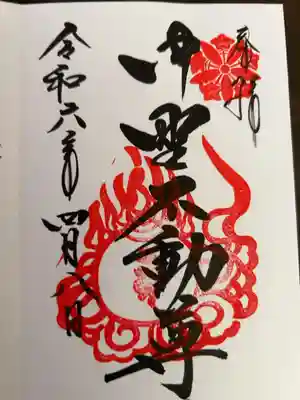 奉拝
中野不動尊
令和六年
四月八日